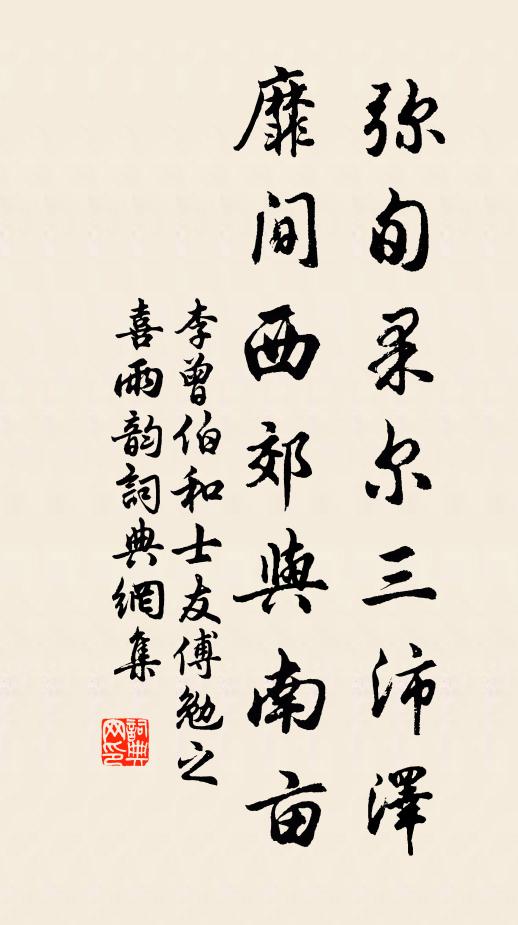 弥旬累尔三沛澤
靡间西郊與南亩
李曾伯和士友傅勉之
喜雨韵詞典網集
詞典
网印